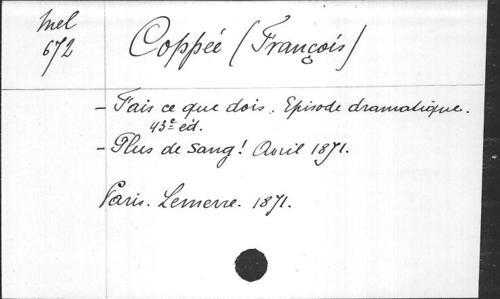 Mel
672
Coppée (François)
- Fais ce que dois. Episode dramatique.
43e éd.
- Plus de sang! Avril 1871.
Paris. Lemerre. 1871.